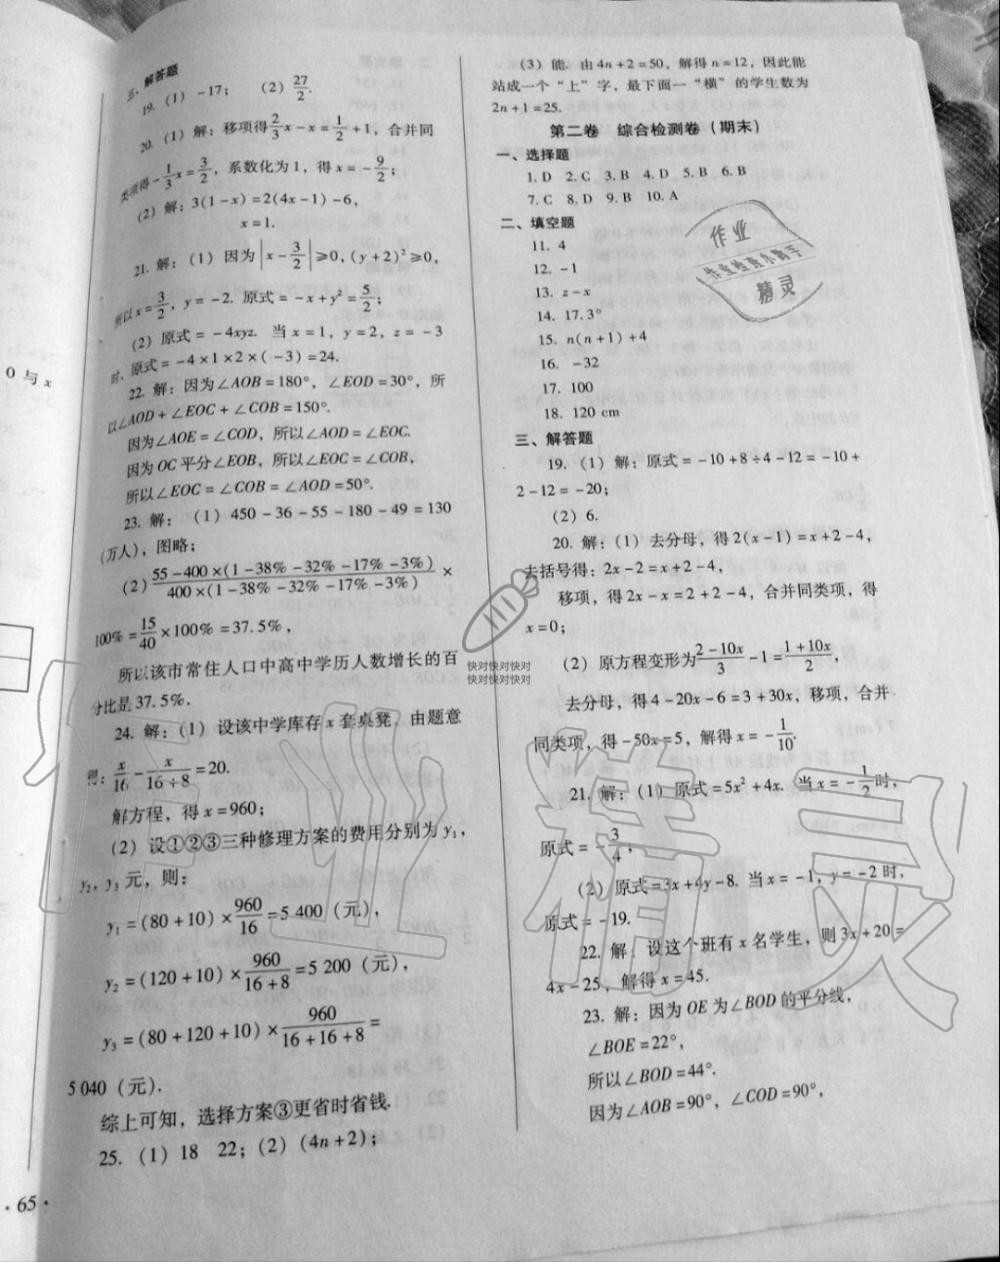 三、解答题
19. (1) -17; (2) 27/2.
20. (1) 解：移项得2/3x-x=1/2+1，合并同
类项得-1/3x=3/2，系数化为1，得x=-9/2；
(2) 解：3(1-x)=2(4x-1)-6,
x=1.
21. 解：(1) 因为|x-3/2|≥0, (y+2)²≥0,
所以x=3/2，y=-2. 原式=-x+y²=5/2；
(2) 原式=-4xyz. 当x=1，y=2，z=-3
时，原式=-4×1×2×(-3)=24.
22. 解：因为∠AOB=180°，∠EOD=30°，所
以∠AOD+∠EOC+∠COB=150°.
因为∠AOE=∠COD，所以∠AOD=∠EOC.
因为OC平分∠EOB，所以∠EOC=∠COB,
所以∠EOC=∠COB=∠AOD=50°.
23. 解：(1) 450-36-55-180-49=130
(万人)，图略；
(2) 55-400×(1-38%-32%-17%-3%)/400×(1-38%-32%-17%-3%) ×
100%=15/40×100%=37.5%,
所以该市常住人口中高中学历人数增长的百
分比是37.5%.
24. 解：(1) 设该中学库存x套桌凳，由题意
得：x/16-x/(16+8)=20.
解方程，得x=960；
(2) 设①②③三种修理方案的费用分别为y₁,
y₂，y₃元，则：
y₁=(80+10)×960/16=5 400 (元),
y₂=(120+10)×960/(16+8)=5 200 (元),
y₃=(80+120+10)×960/(16+16+8)=
5 040 (元).
综上可知，选择方案③更省时省钱.
25. (1) 18 22; (2) (4n+2);
· 65 ·
0与x
(3) 能. 由4n+2=50，解得n=12，因此能
站成一个“上”字，最下面一“横”的学生数为
2n+1=25.
第二卷 综合检测卷(期末)
一、选择题
1. D 2. C 3. B 4. D 5. B 6. B
7. C 8. D 9. B 10. A
二、填空题
11. 4
12. -1
13. z-x
14. 17.3°
15. n(n+1)+4
16. -32
17. 100
18. 120 cm
三、解答题
19. (1) 解：原式=-10+8÷4-12=-10+
2-12=-20；
(2) 6.
20. 解：(1) 去分母，得2(x-1)=x+2-4,
去括号得：2x-2=x+2-4,
移项，得2x-x=2+2-4，合并同类项，得
x=0；
(2) 原方程变形为(2-10x)/3-1=(1+10x)/2,
去分母，得4-20x-6=3+30x，移项，合并
同类项，得-50x=5，解得x=-1/10.
21. 解：(1) 原式=5x²+4x. 当x=-1/2时，
原式=-3/4,
(2) 原式=3x+4y-8. 当x=-1，y=-2时，
原式=-19.
22. 解：设这个班有x名学生，则3x+20=
4x-25，解得x=45.
23. 解：因为OE为∠BOD的平分线，
∠BOE=22°,
所以∠BOD=44°.
因为∠AOB=90°，∠COD=90°,
作业
作业检查小助手
精灵
快对快对快对
快对快对快对
作业精灵